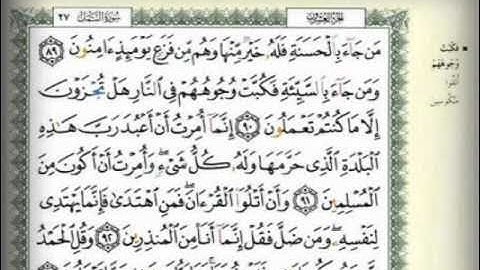 الجزء العشرون
سورة النمل ٢٧
مَن جَآءَ بِٱلْحَسَنَةِ فَلَهُۥ خَيْرٌ مِّنْهَا وَهُم مِّن فَزَعٍ يَوْمَئِذٍ ءَامِنُونَ ٨٩
وَمَن جَآءَ بِٱلسَّيِّئَةِ فَكُبَّتْ وُجُوهُهُمْ فِى ٱلنَّارِ هَلْ تُجْزَوْنَ
إِلَّا مَا كُنتُمْ تَعْمَلُونَ ٩٠ إِنَّمَآ أُمِرْتُ أَنْ أَعْبُدَ رَبَّ هَٰذِهِ
ٱلْبَلْدَةِ ٱلَّذِى حَرَّمَهَا وَلَهُۥ كُلُّ شَىْءٍ وَأُمِرْتُ أَنْ أَكُونَ مِنَ
ٱلْمُسْلِمِينَ ٩١ وَأَنْ أَتْلُوَا۟ ٱلْقُرْءَانَ فَمَنِ ٱهْتَدَىٰ فَإِنَّمَا يَهْتَدِى
لِنَفْسِهِۦ وَمَن ضَلَّ فَقُلْ إِنَّمَآ أَنَا۠ مِنَ ٱلْمُنذِرِينَ ٩٢ وَقُلِ ٱلْحَمْدُ
فكبت
وجوههم